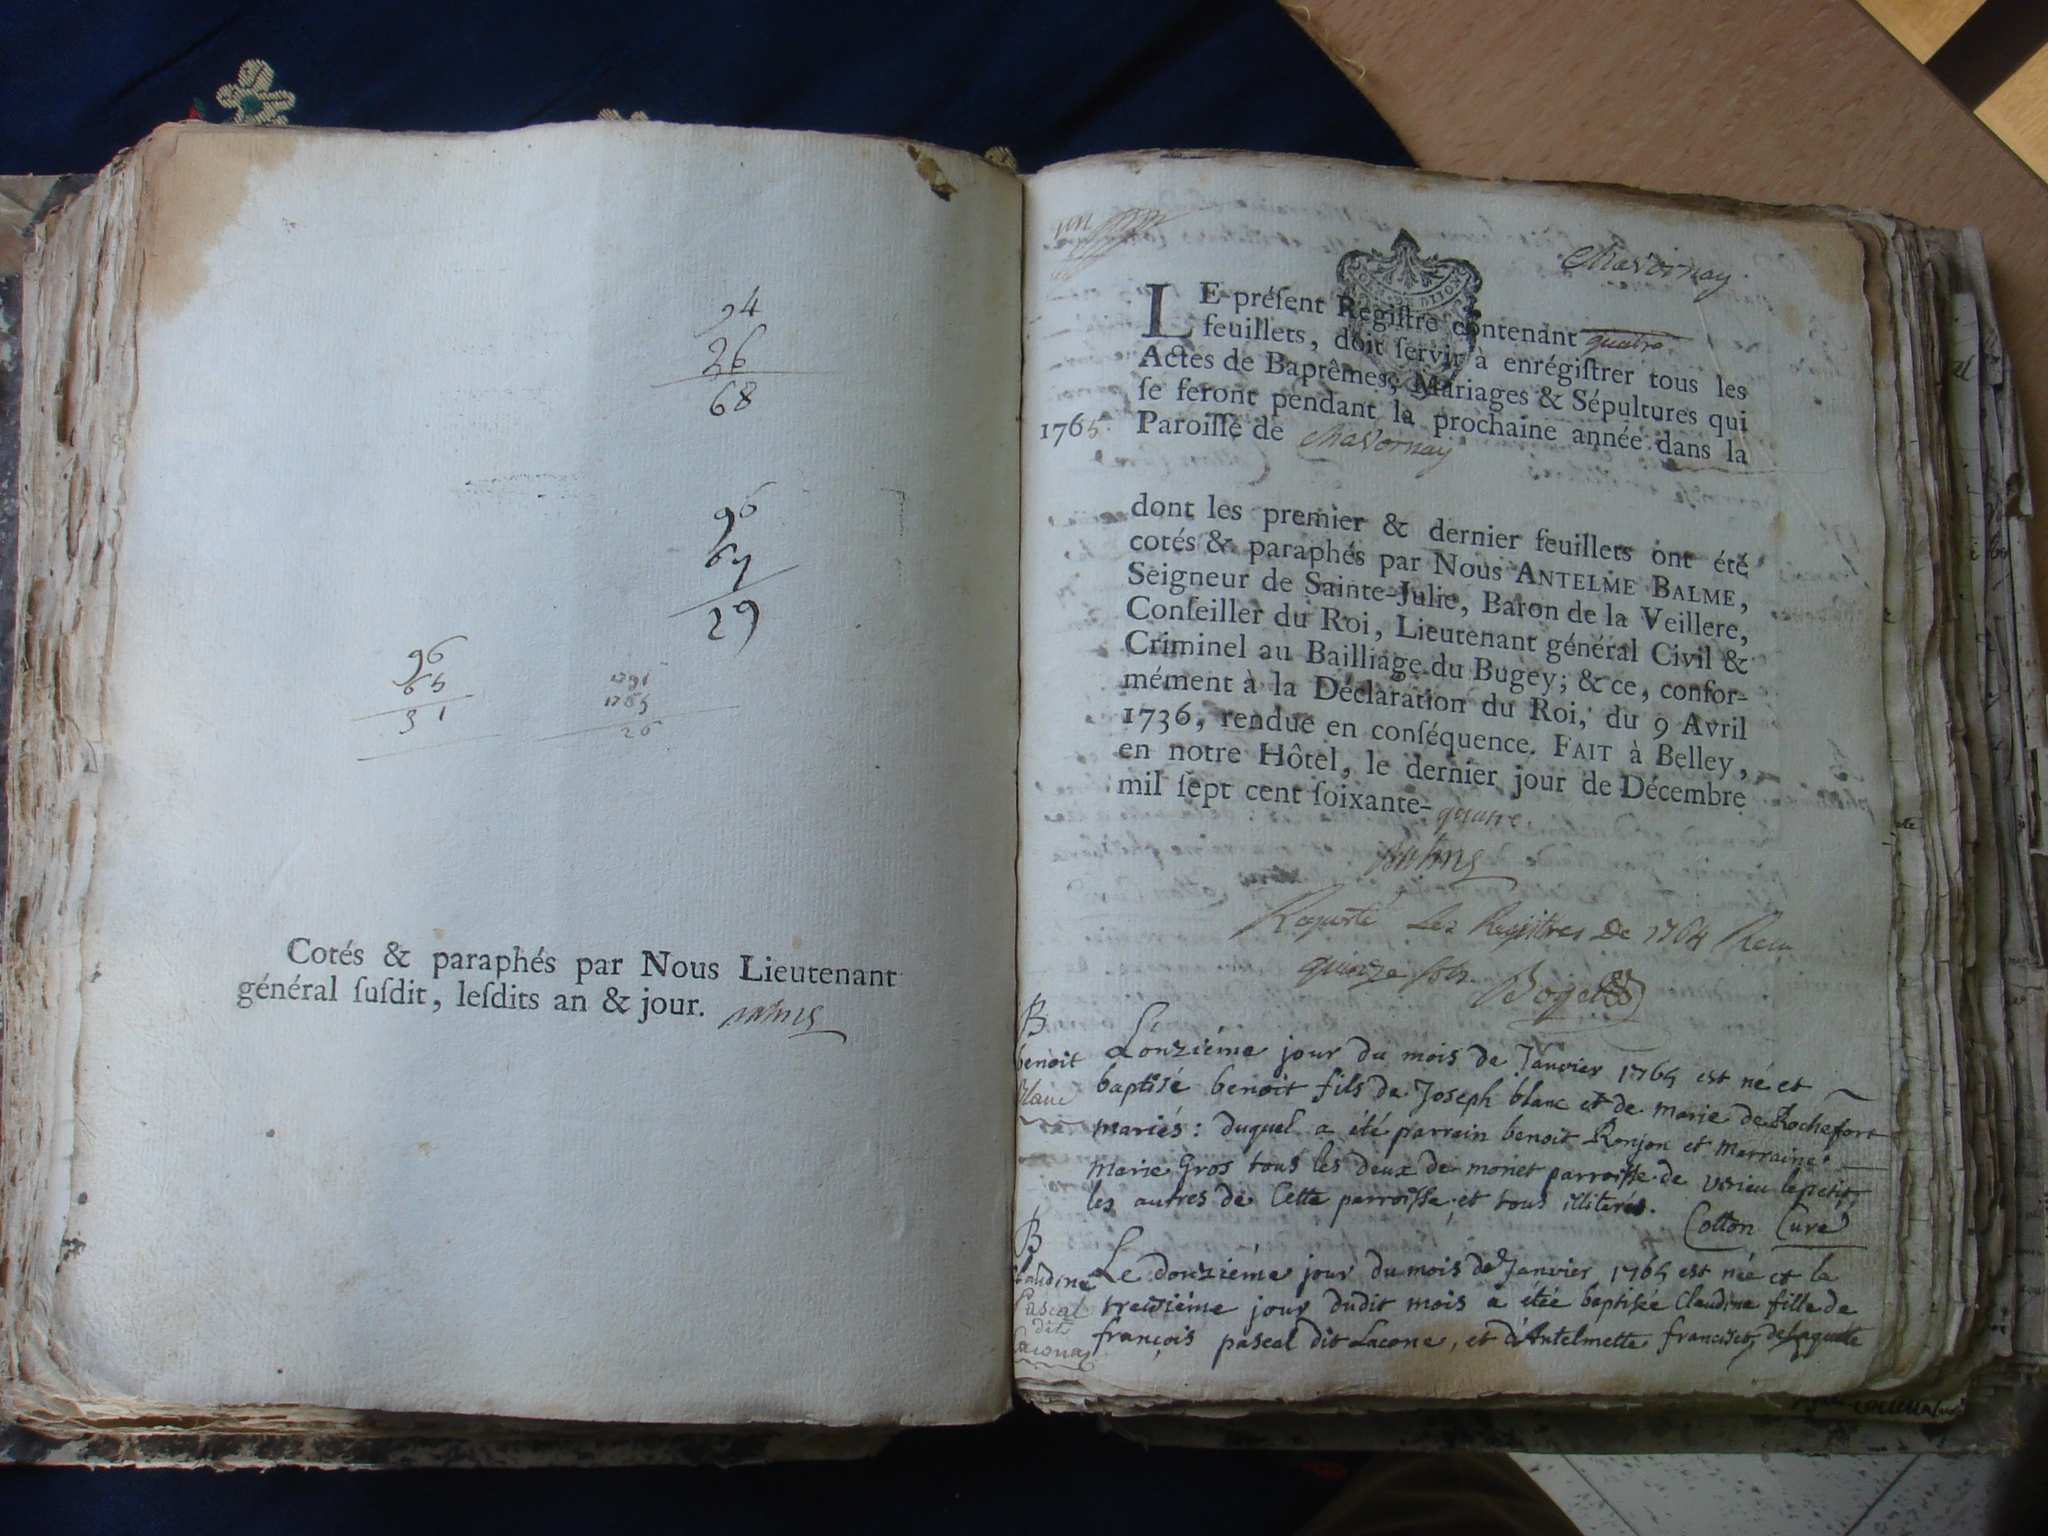 94
26
68
96
67
29
96
65
31
1791
1765
26
Cotés & paraphés par Nous Lieutenant
général ſuſdit, leſdits an & jour.
Chavornay
LE préſent Regiſtre contenant quatre
feuillets, doit ſervir à enrégiſtrer tous les
Actes de Baptêmes, Mariages & Sépultures qui
ſe feront pendant la prochaine année dans la
1765. Paroiſſe de Chavornay
dont les premier & dernier feuillets ont été
cotés & paraphés par Nous ANTELME BALME,
Seigneur de Sainte-Julie, Baron de la Veillere,
Conſeiller du Roi, Lieutenant général Civil &
Criminel au Bailliage du Bugey; & ce, confor-
mément à la Déclaration du Roi, du 9 Avril
1736, rendue en conſéquence. FAIT à Belley,
en notre Hôtel, le dernier jour de Décembre
mil ſept cent ſoixante-quatre.
Les Registres De 1764
quinze sols
B
benoit
blanc
L'onziéme jour du mois de Janvier 1765 est né et
baptisé benoit fils de Joseph blanc et de marie de Rochefort
mariés: duquel a été parrain benoit Ronjon et marraine
marie Gros tous les deux de moriet parroisse de virieu le petit,
les autres de Cette parroisse et tous illiterés.
Cotton Curé
B
Claudine
Pascal
dit
Lacona
Le douziéme jour du mois de Janvier 1765 est née et le
treiziéme jour dudit mois a étée baptisée Claudine fille de
françois pascal dit Lacone, et d'Antelmette francisco, de Laquelle